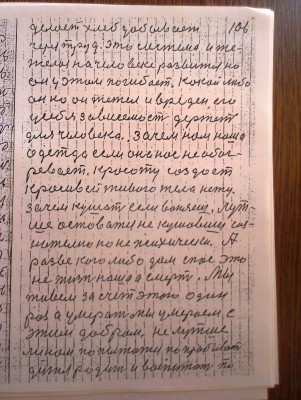 делает хлеб добывает 106
чум труд. Это система и те-
жела на человеке развита но
он у этом погибает. Какой либо
он ко он тежел и вреден его
у себя зависемость держет
для человека. Зачем нам наша
одежда если она нас не обог-
ревает. Красоту создает
красивей живого тела нету.
Зачем кушат если воняеш. Лут-
ше оставатя не кушовши соз-
нателно но не психически. А
разве кого либо дом спас это
не жизн наша а смерт. Мы
живем за счет этого один
раз а умератми умераем, с
этим добрам. не лутше
ли нам попытатя попробыват
дитя родит и воспитат по